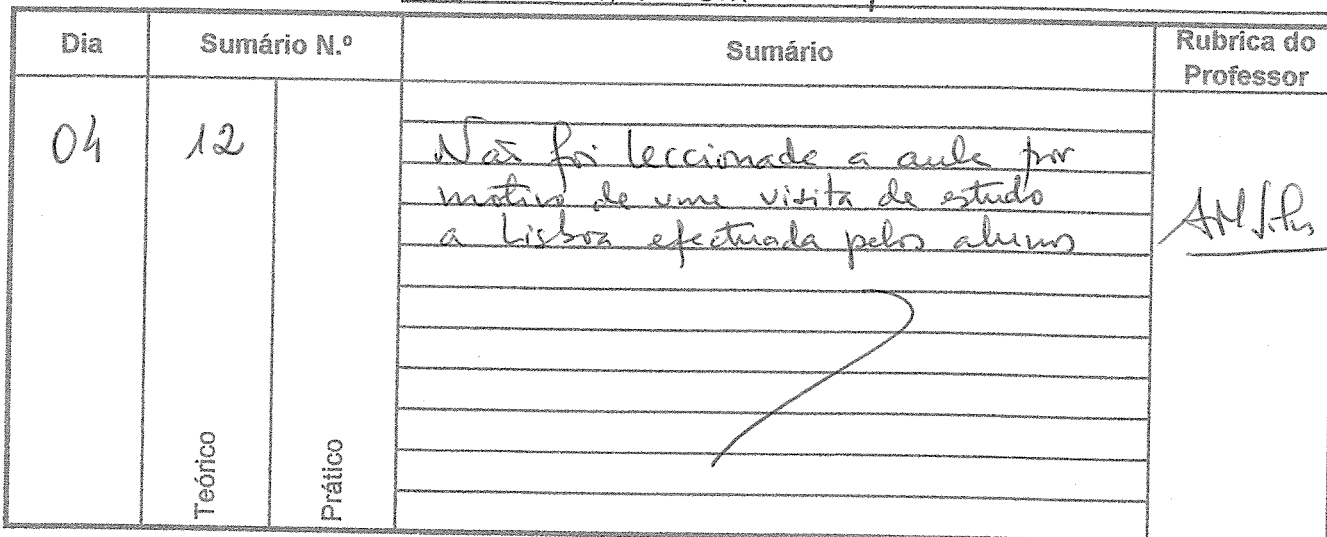 Dia Sumário N.º Sumário Rubrica do
Professor
04 12 Não foi leccionada a aula por
motivo de uma visita de estudo
a Lisboa efectuada pelos alunos
Teórico Prático